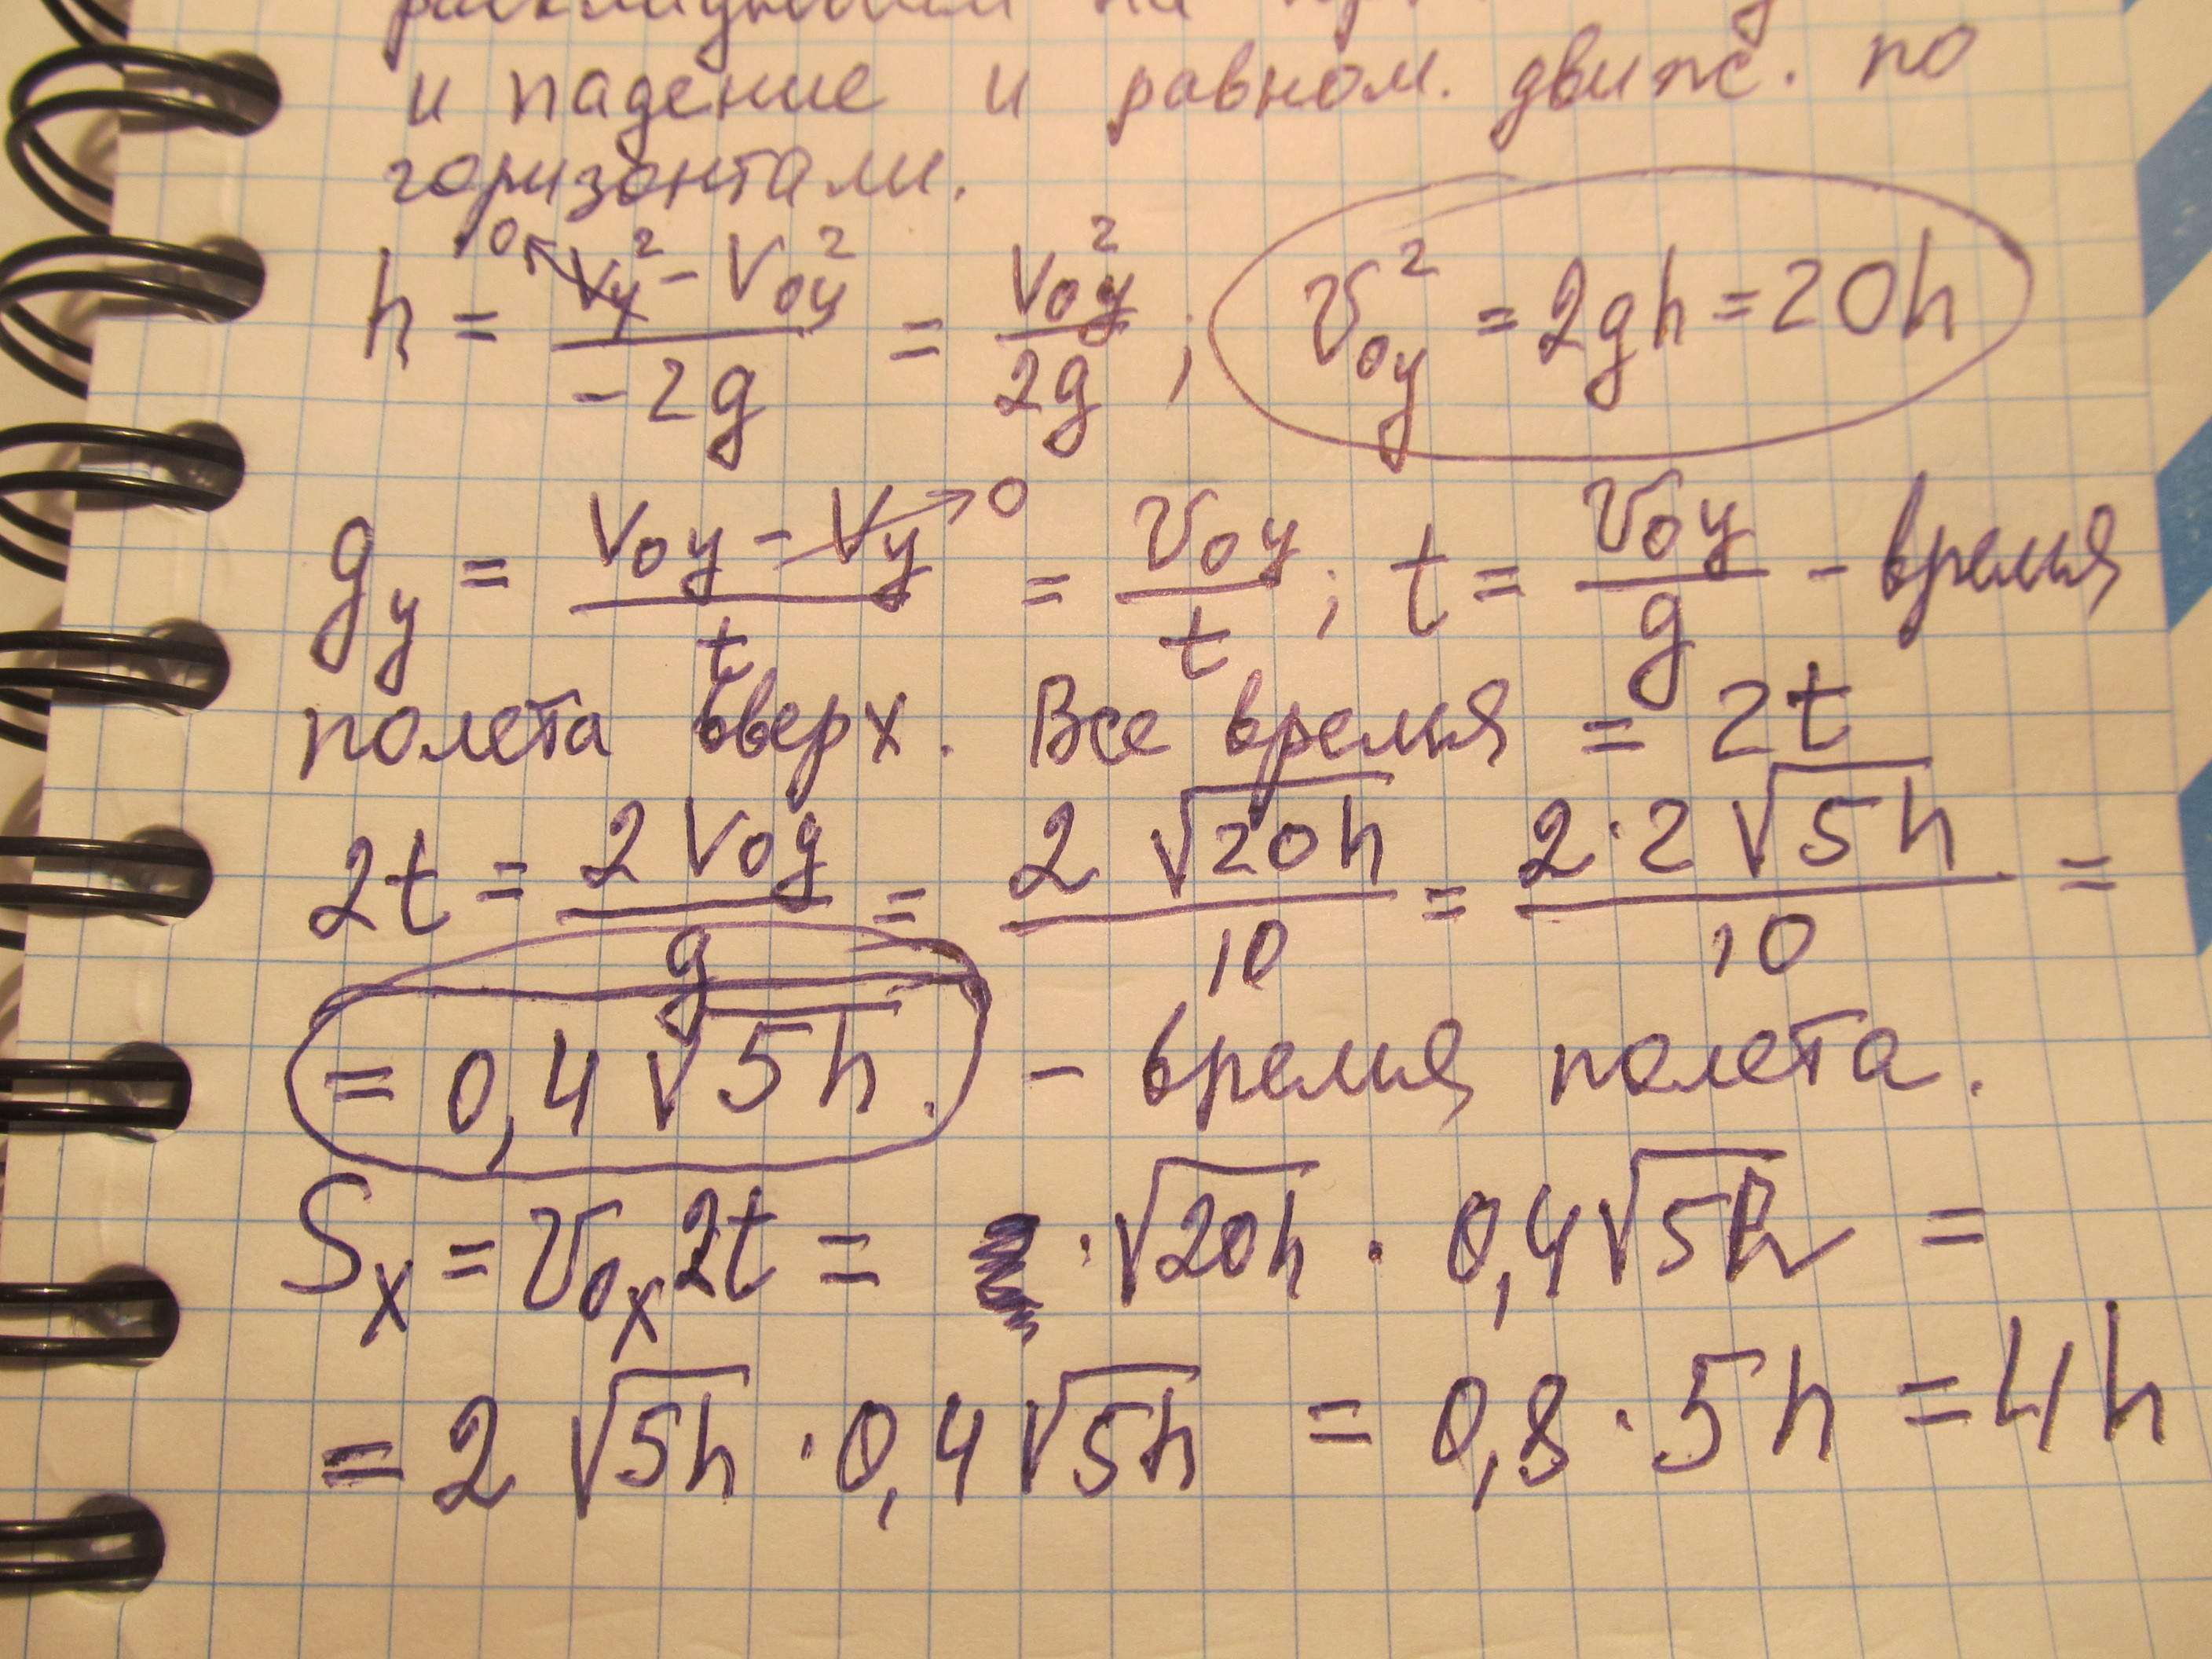 на
и падение и равном. движ. по
горизонтали.
h = (Vy² - Voy²)/(-2g) = Voy²/2g ; Voy² = 2gh = 20h
0
gy = (Voy - Vy)/t = Voy/t ; t = Voy/g - время
0
полета вверх. Все время = 2t
2t = 2Voy/g = 2√20h/10 = 2·2√5h/10 =
= 0,4√5h. - время полета.
Sx = Vox 2t = · √20h · 0,4√5h =
= 2√5h · 0,4√5h = 0,8 · 5h = 4h